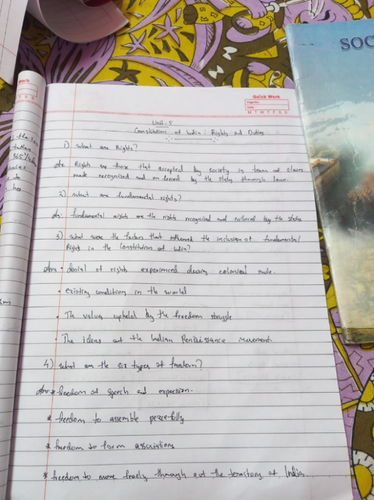 SOC
Quick Work
M T W T F S S
Unit-5
Constitution of India: Rights and Duties
1) what are Rights?
Ans Rights are those that accepted by society in terms of claims
made recognised and enforced by the state through laws.
2) what are fundamental rights?
Ans: fundamental rights are the rights recognised and enforced by the state
3) what were the factors that influenced the inclusion of fundamental
Rights in the Constitution of India?
Ans • denial of rights experienced during colonial rule.
• existing conditions in the world
• The values upheld by the freedom struggle
• The ideas of the Indian Renaissance Movement
4) what are the six types of freedom?
Ans * freedom of speech and expression.
* freedom to assemble peacefully
* freedom to form associations
* freedom to move freely through out the territory of India